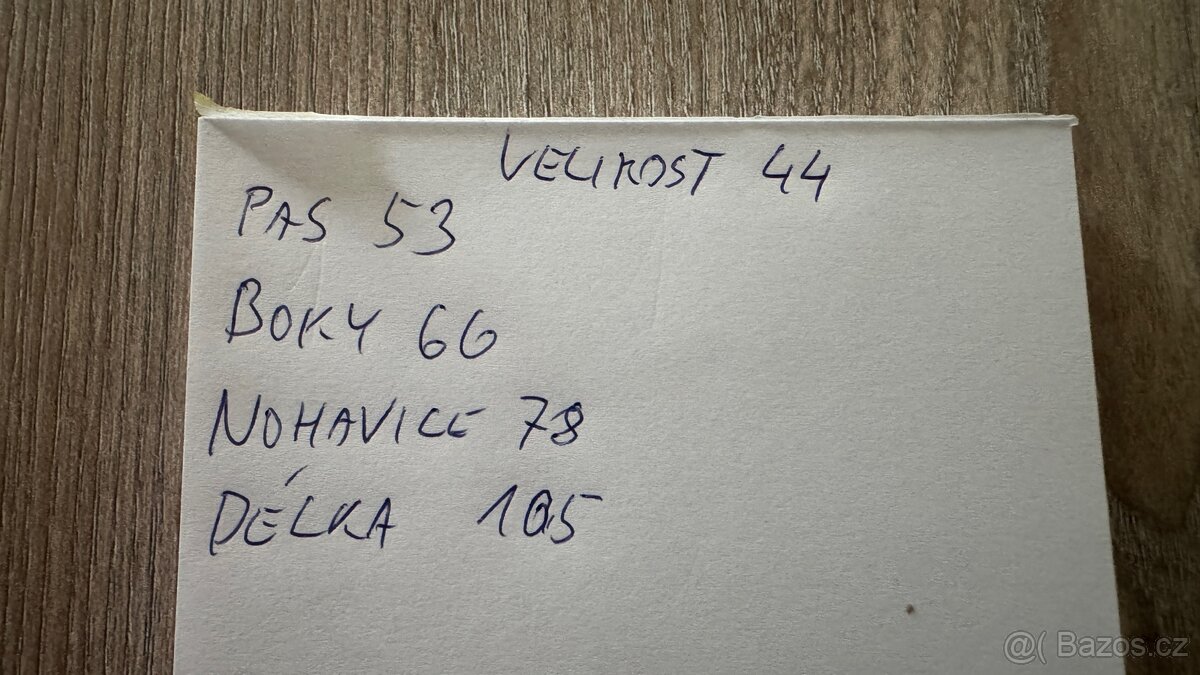 VELIKOST 44
PAS 53
BOKY 66
NOHAVICE 78
DÉLKA 105
@( Bazos.cz